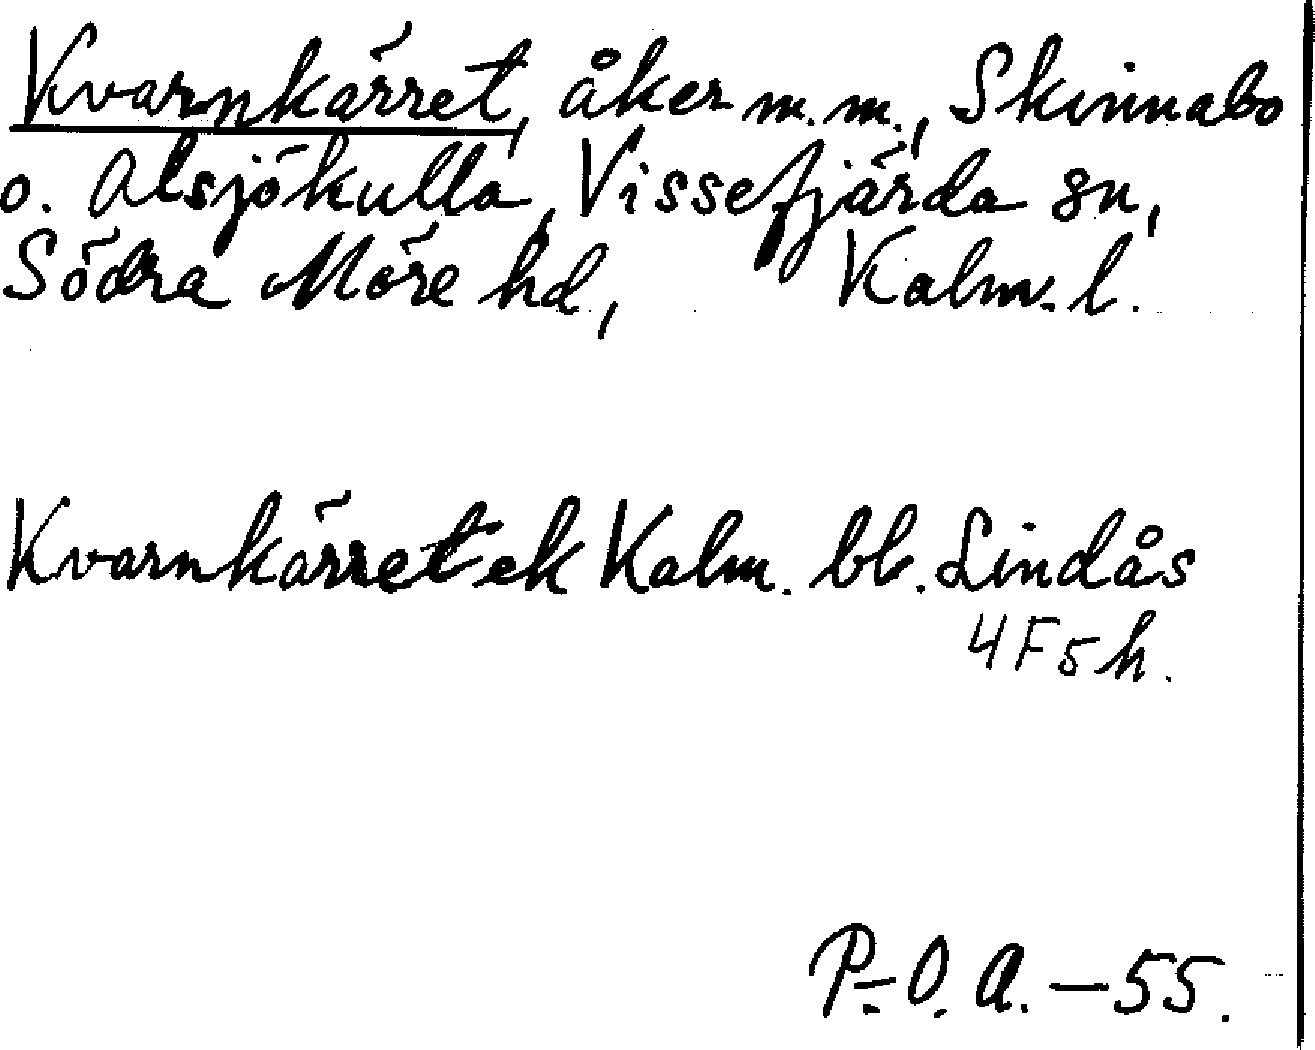 Kvarnkärret, åker m.m., Skinnabo
o. Alsjökulla, Vissefjärda sn,
Södra Möre hd, Kalm. l.
Kvarnkärret ek Kalm. bl. Lindås
4F5h.
P.-O. A. – 55.